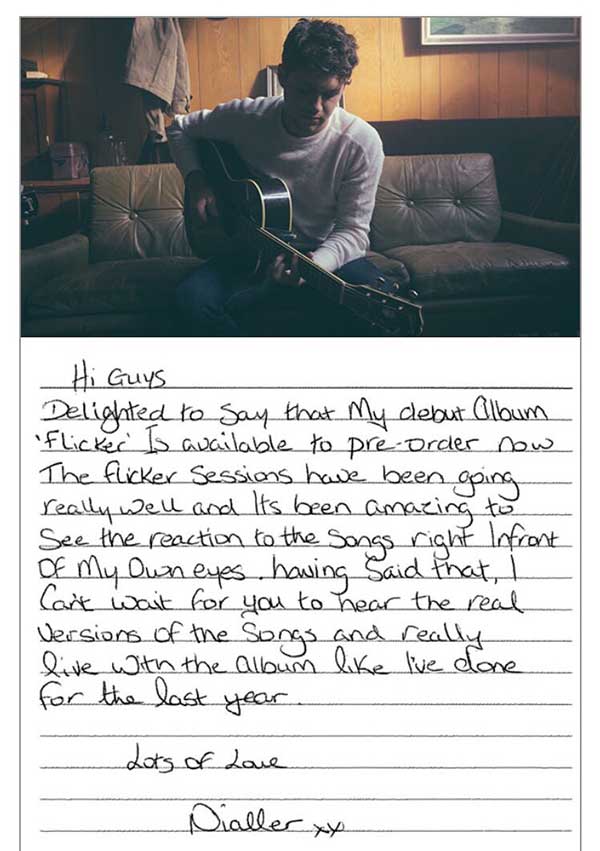 Hi Guys
Delighted to say that My debut Album
'Flicker' Is available to pre-order now
The flicker sessions have been going
really well and Its been amazing to
See the reaction to the Songs right Infront
Of My Own eyes. having Said that, I
Can't wait for you to hear the real
Versions of the Songs and really
live with the album like I've done
for the last year.
Lots of Love
Nialler xx